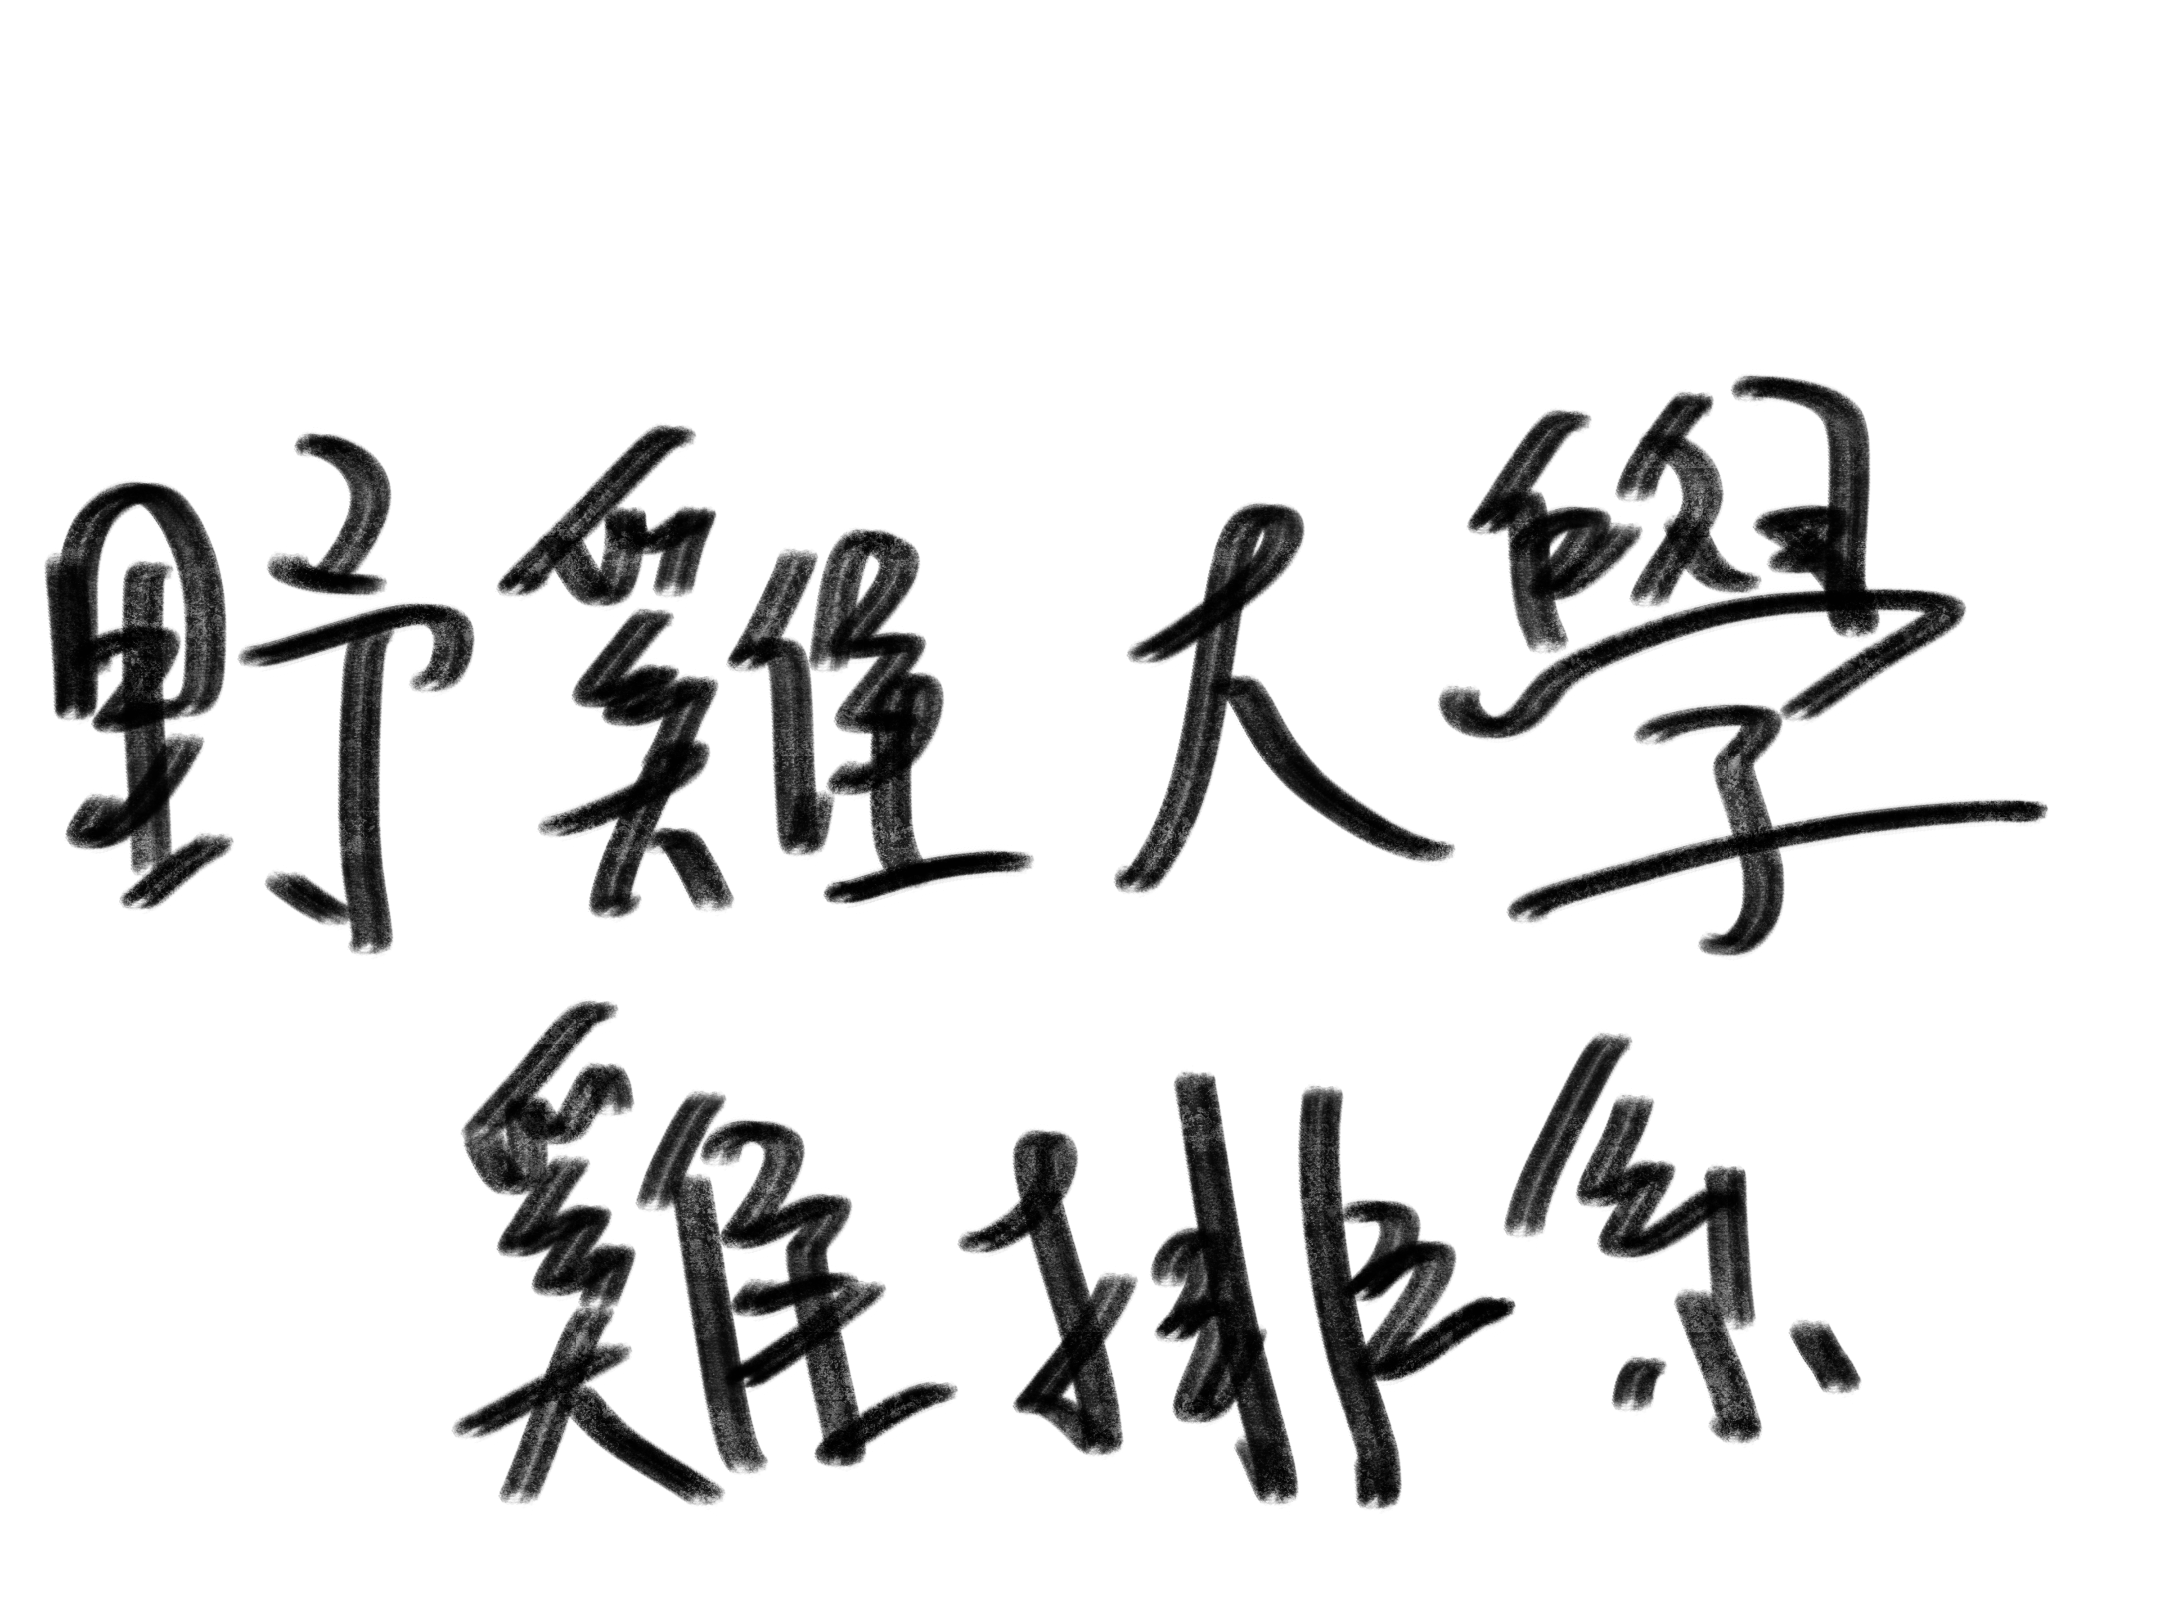 野雞大學
雞排系